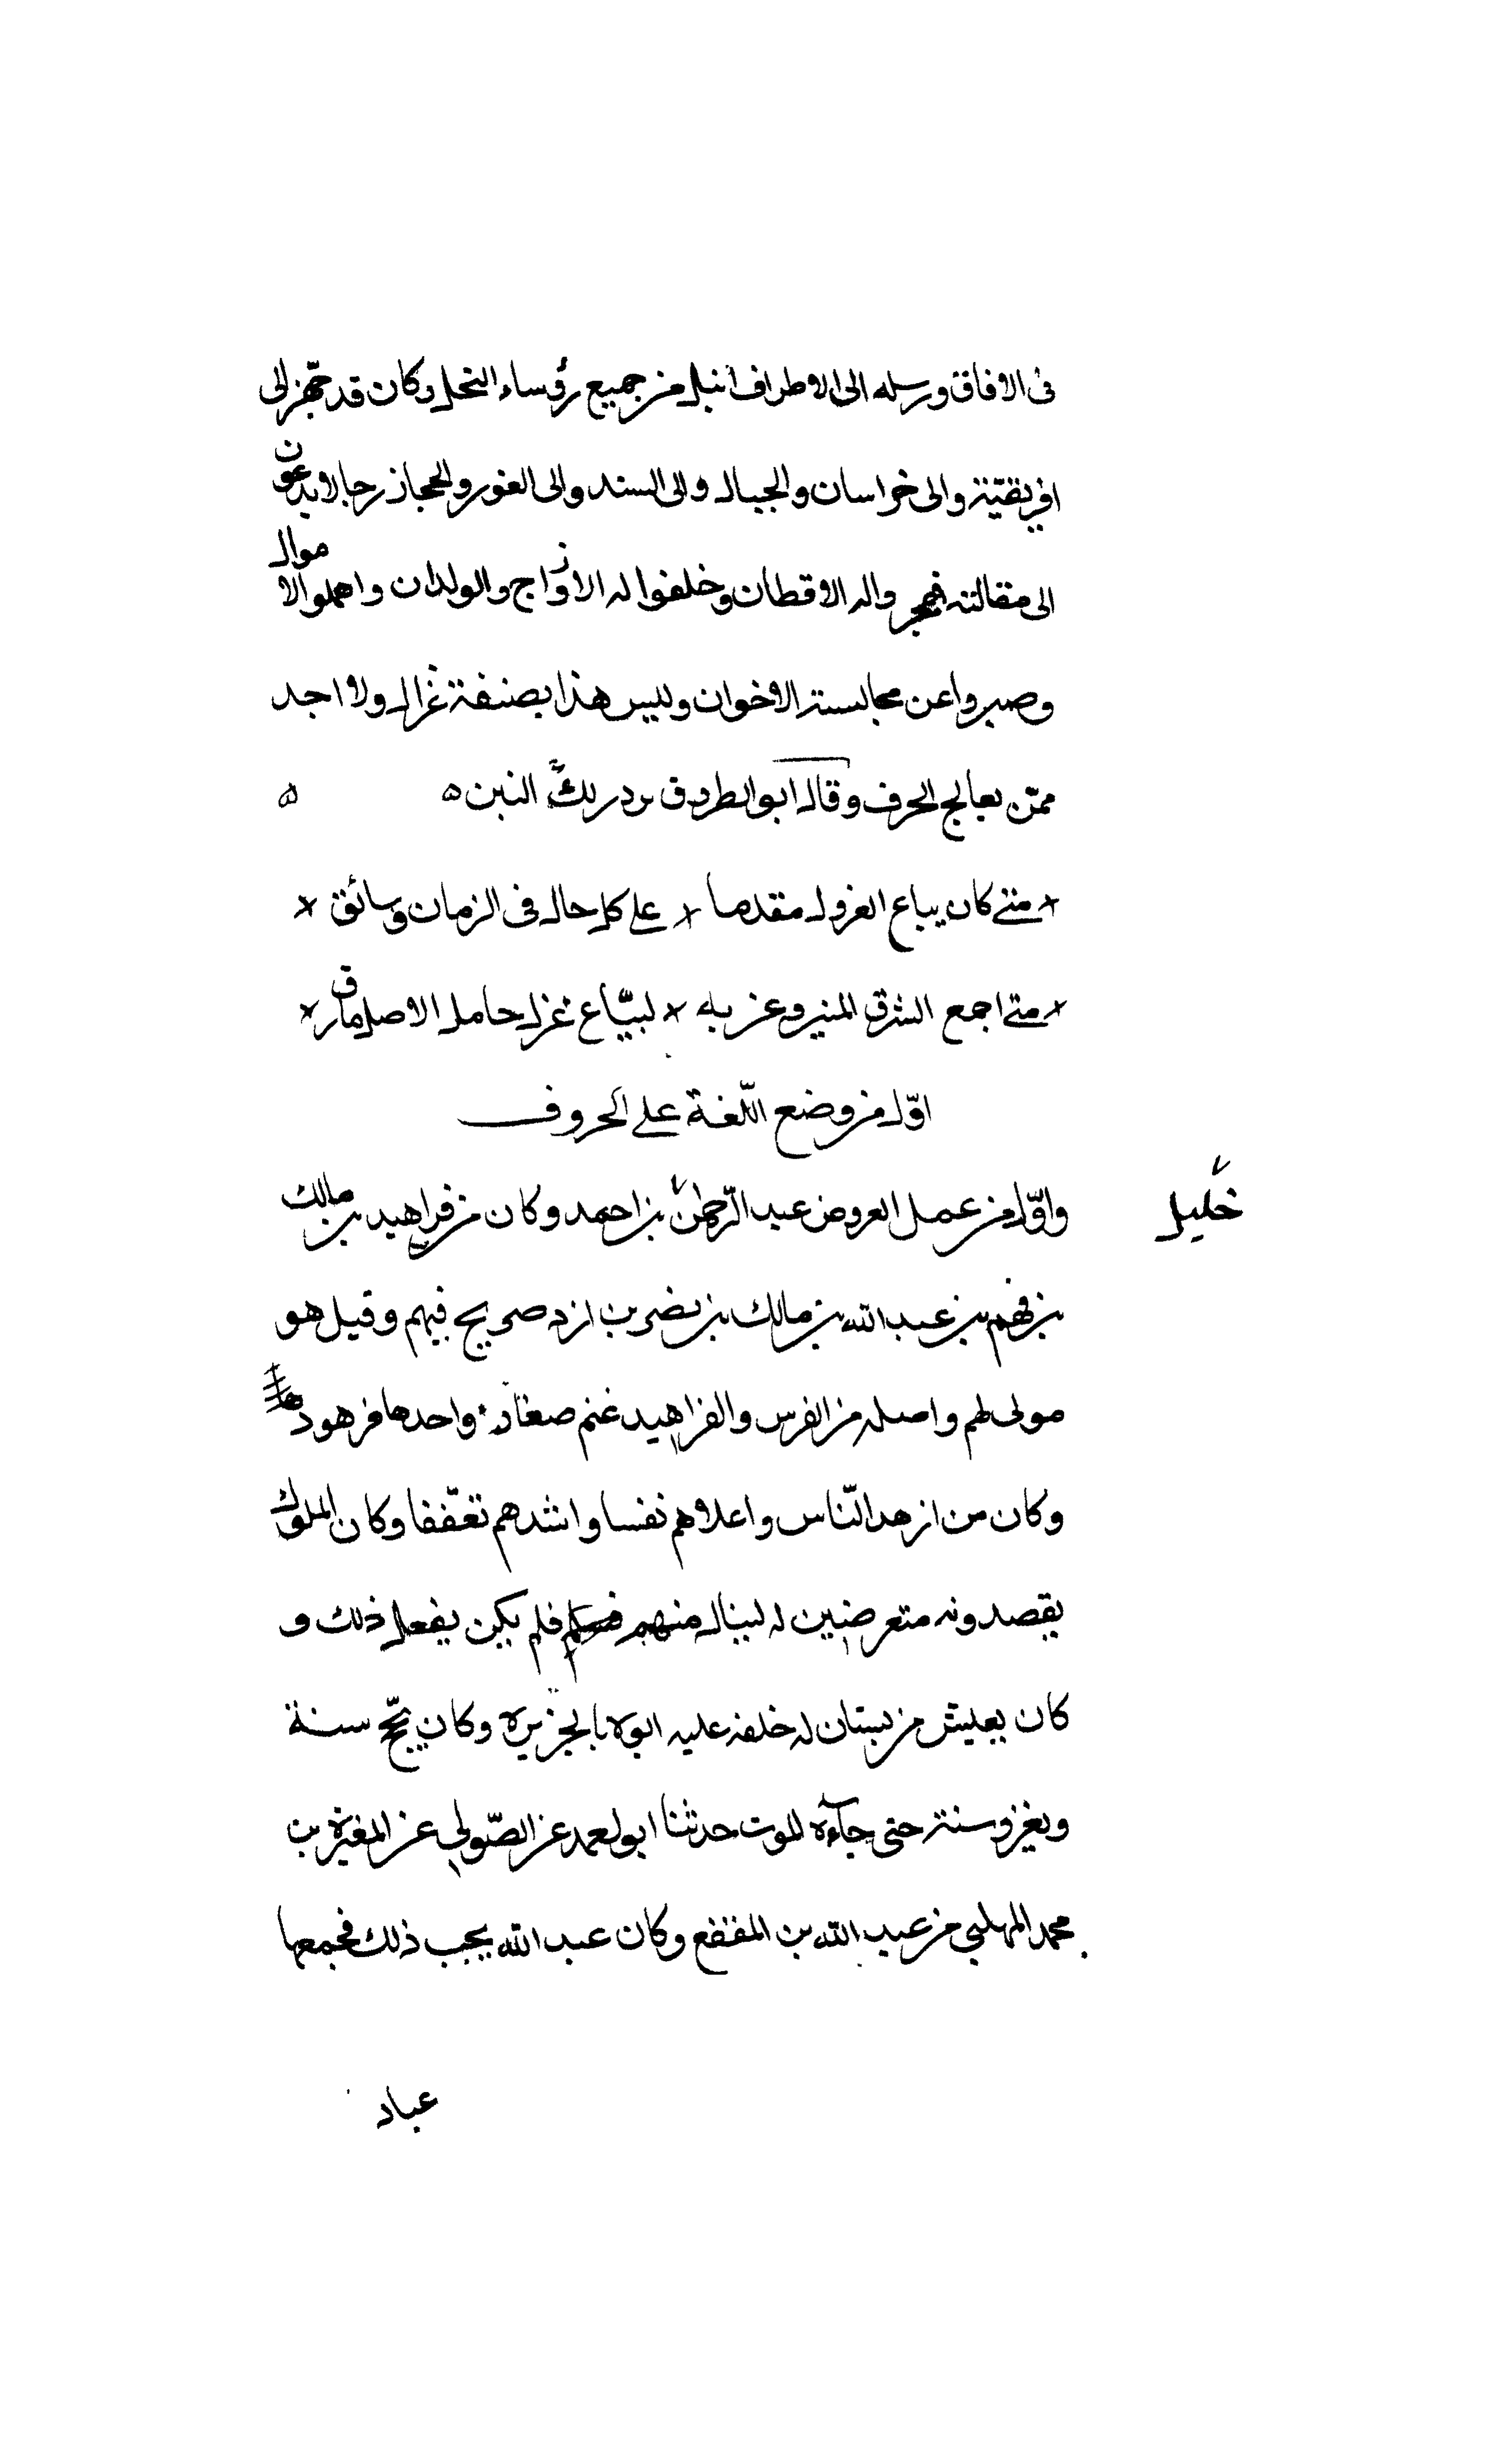 فى الافاق ورسله الى الاطراف انبل من جميع رؤساء النحل وكان قد جهز الى
افريقية والى خراسان والجبال والى السند والى الغور والحجاز رجالا يدعون
الى مقالته فهجروا له الاقطان وخلفوا له الازواج والولدان واهملوا الاموال
وصبروا عن مجالسة الاخوان وليس هذا بصنفة غزال ولا اجد
ممن يعالج الحرف وقال ابوالطروق النبن ه ه
متى كان يباع الغزول مقدما على كل حال فى الزمان وسائق
متى اجمع الشرق المنير وغربه لبياع غزل حامل الاصل مارق
اول من وضع اللغة على الحروف
خليل
واول من عمل العروض عبد الرحمن بن احمد وكان من فراهيد بن مالك
بن فهم بن عبد الله بن مالك بن نضر بن ازد صريح فيهم وقيل هو
مولى لهم واصله من الفرس والفراهيد غنم صغار واحدها فرهود
وكان من ازهد الناس واعلاهم نفسا واشدهم تعففا وكان الملوك
يقصدونه متعرضين له لينال منهم فلم يكن يفعل ذلك و
كان يعيش من بستان له خلفه عليه ابوه بالجزيره وكان يحج سنة
ويغزو سنة حتى جآءه الموت حدثنا عن الصولى عن المغيرة بن
محمد المهلبى من عبد الله بن المقفع وكان عبد الله يحب ذلك فجمعها
عباد